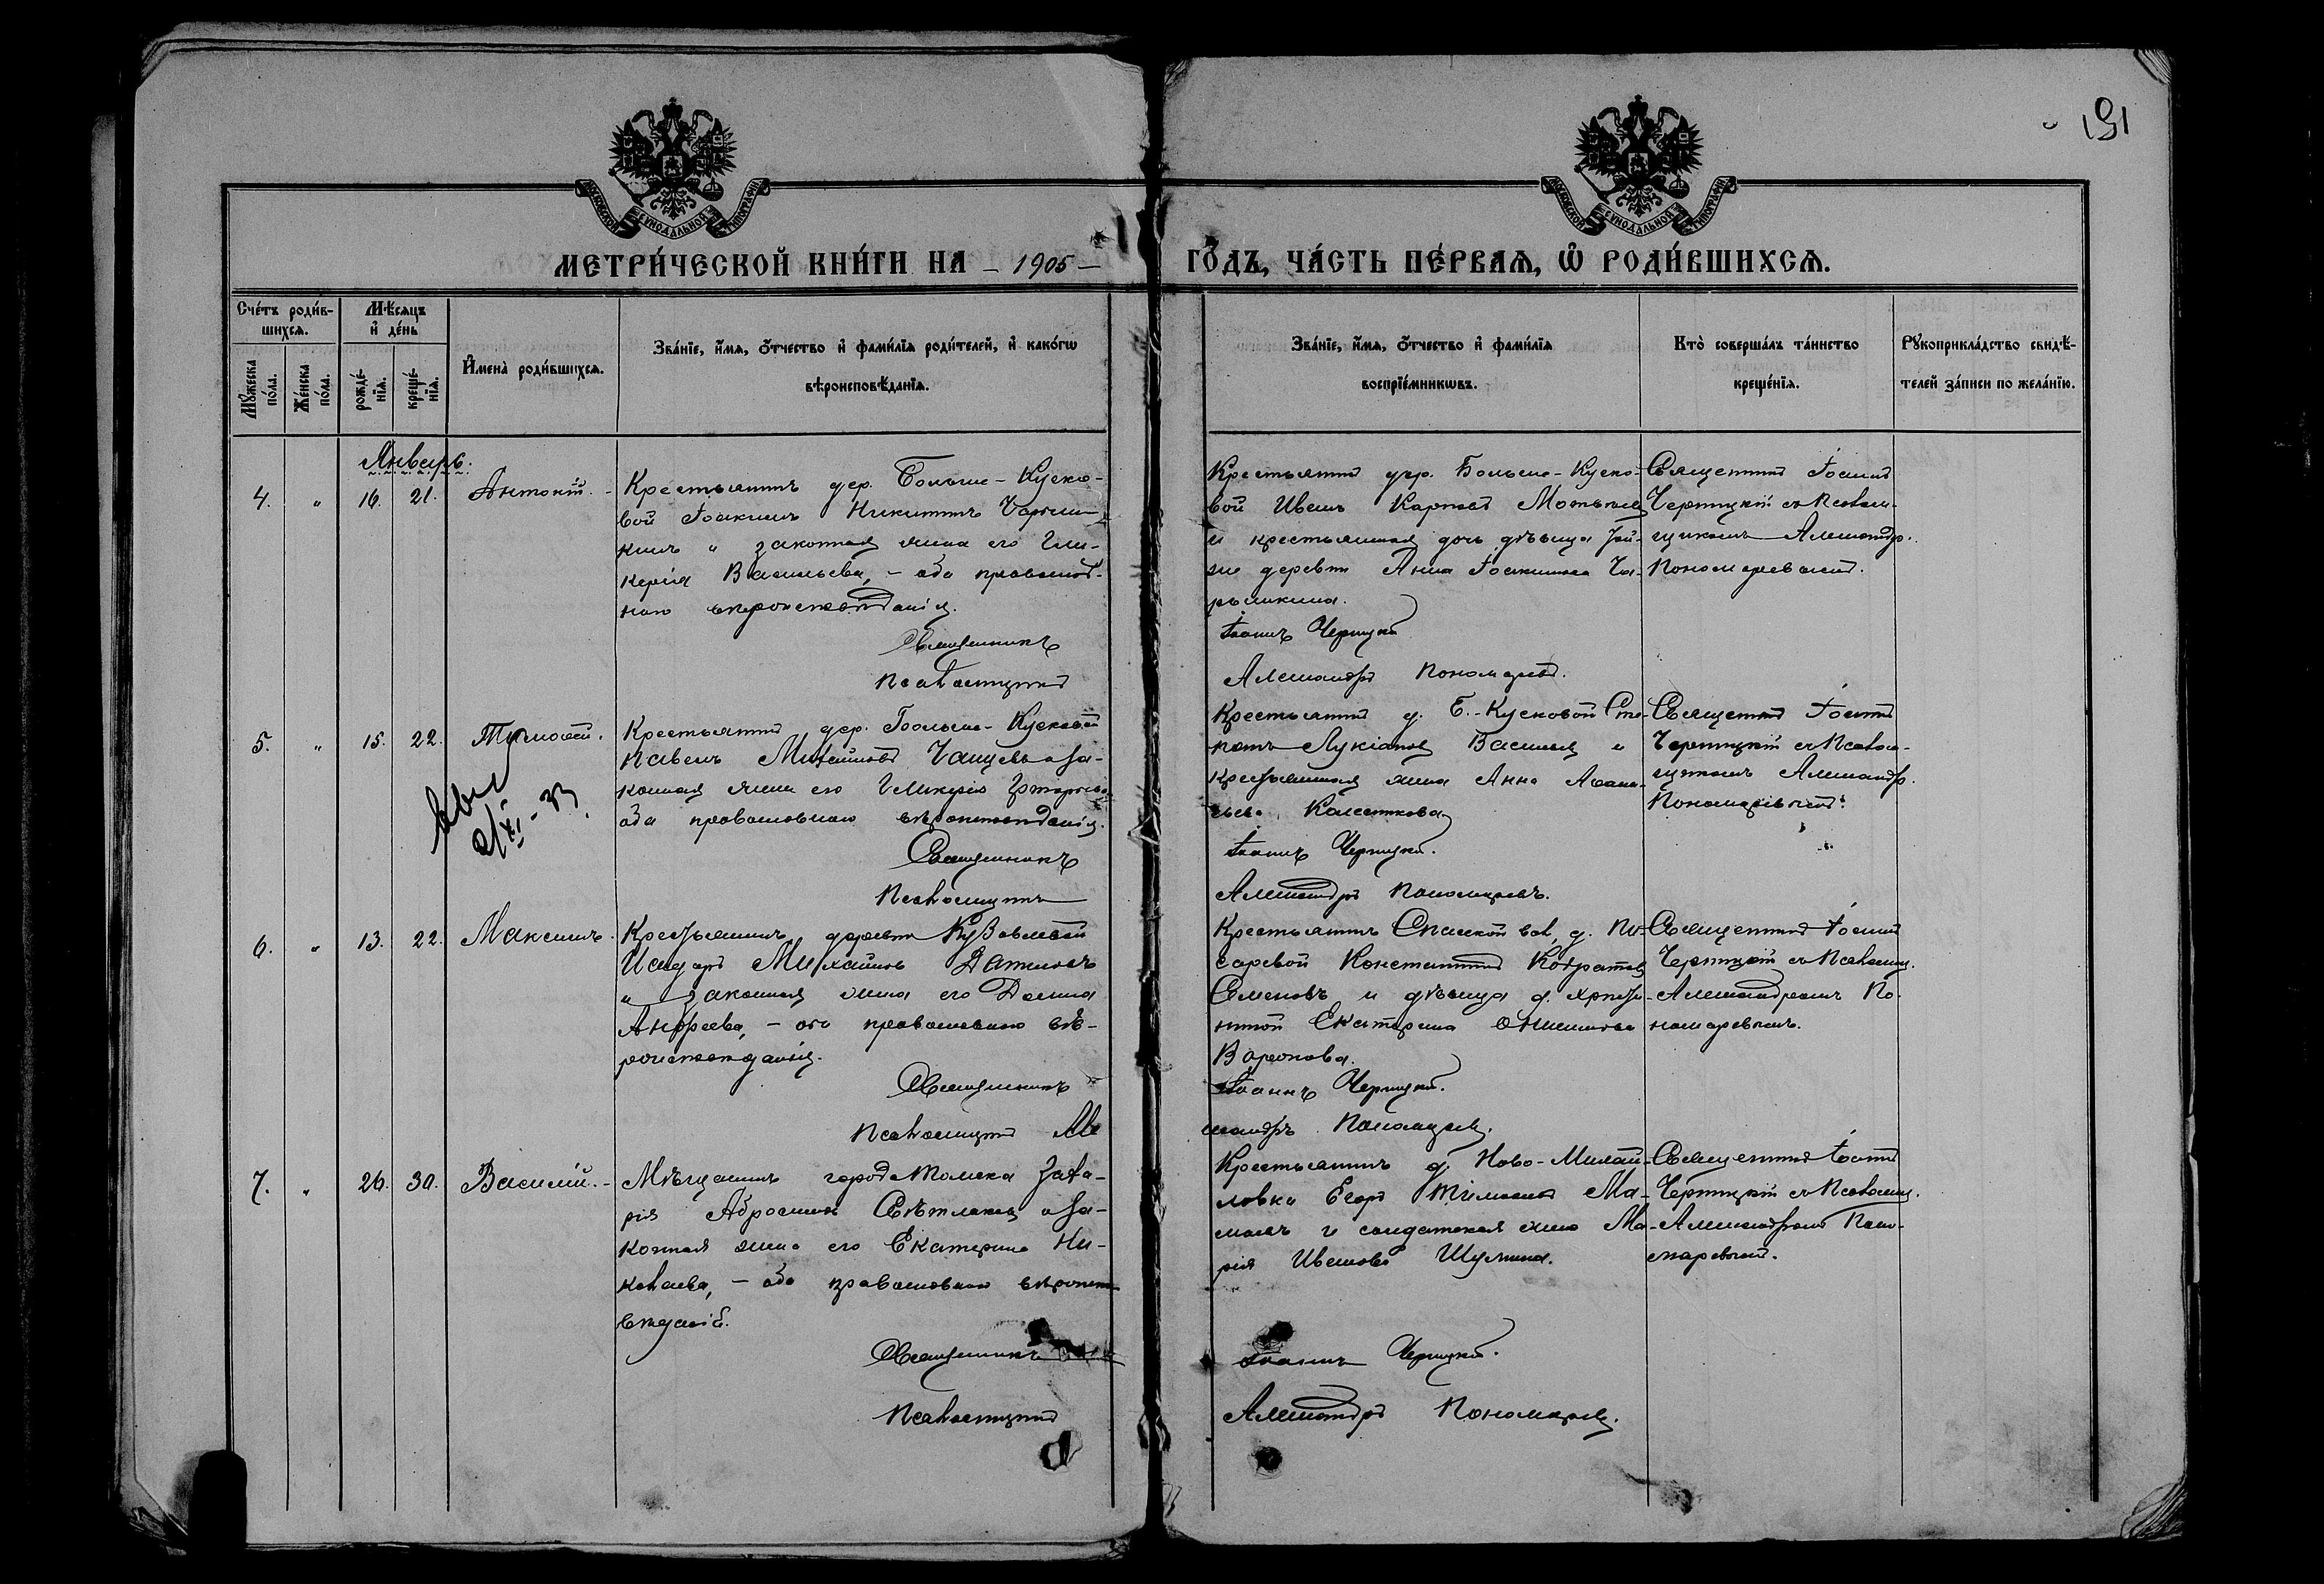 151
МОСКОВСКОЙ СѴНОДАЛЬНОЙ ТИПОГРАФІИ
МОСКОВСКОЙ СѴНОДАЛЬНОЙ ТИПОГРАФІИ
МЕТРИ́ЧЕСКОЙ КНИ́ГИ НА - 1905 - ГО́ДЪ, ЧА́СТЬ ПЕ́РВАѦ, Ѡ҆ РОДИ́ВШИХСѦ.
Сче́тъ роди́в-
шихсѧ.
Мѣ́сѧцъ
и҆ де́нь
Мꙋ́жеска
по́ла.
Же́нска
по́ла.
рожде́-
нїѧ.
креще́-
нїѧ.
И҆мена̀ роди́вшихсѧ.
Зва́нїе, и҆́мѧ, ѻ҆́тчество и҆ фами́лїѧ роди́телей, и҆ како́гѡ
вѣроисповѣ́данїѧ.
Зва́нїе, и҆́мѧ, ѻ҆́тчество и҆ фами́лїѧ
воспрїе́мникѡвъ.
Кто̀ соверша́лъ та́инство
креще́нїѧ.
Рꙋкоприкла́дство свидѣ́-
телей за́писи по жела́нїю.
Январь.
4. " 16. 21. Антоній.
Крестьянинъ дер. Больше-Куско-
вой Іоакимъ Никитинъ
и законная жена его Гли-
керія Васильева, - оба православ-
наго вѣроисповѣданія.
Священникъ
Псаломщикъ
Крестьянинъ дер. Больше-Куско-
вой Иванъ Карповъ
и крестьянская дочь дѣвица той-
же деревни Анна Іоакимова Ча-
рыкина.
Іоаннъ Черницкій
Александръ Пономаревъ.
Священникъ Іоаннъ
Черницкій съ Псалом-
щикомъ Александр.
Пономаревымъ.
5. " 15. 22. Тимоѳей.
Крестьянинъ дер. Больше-Кусковой
Павелъ Михайловъ и за-
конная жена его Гликерія
оба православнаго вѣроисповѣданія.
Священникъ
Псаломщикъ
Крестьянинъ д. Б.-Кусковой Сте-
панъ Лукіановъ и
крестьянская жена Анна Аѳана-
сьева Колесникова
Іоаннъ Черницкій.
Александръ Пономаревъ.
Священникъ Іоаннъ
Черницкій съ Псалом-
щикомъ Александр.
Пономаревымъ.
6. " 13. 22. Максимъ.
Крестьянинъ деревни
Исидоръ Михайловъ
и законная жена его Домна
Андреева, - оба православнаго вѣ-
роисповѣданія.
Священникъ
Псаломщикъ Але
Крестьянинъ Спасской вол. д.
Константинъ Кондратовъ
Семеновъ и дѣвица д.
Екатерина
Воронова.
Іоаннъ Черницкій.
ксандръ Пономаревъ.
Священникъ Іоаннъ
Черницкій съ Псаломщ.
Александромъ По-
номаревымъ.
7. " 26. 30. Василій.
Мѣщанинъ города Томска Заха-
рія Абросимовъ и за-
конная жена его Екатерина Ни-
колаева, - оба православнаго вѣроиспо-
вѣданія.
Священникъ
Псаломщикъ
Крестьянинъ д. Ново-Михай-
ловки Егоръ Тимоѳеевъ Ма-
и солдатская жена Ма-
рія Иванова Шумина.
Іоаннъ Черницкій.
Александръ Пономаревъ.
Священникъ Іоаннъ
Черницкій съ Псаломщ.
Александромъ Поно-
маревымъ.